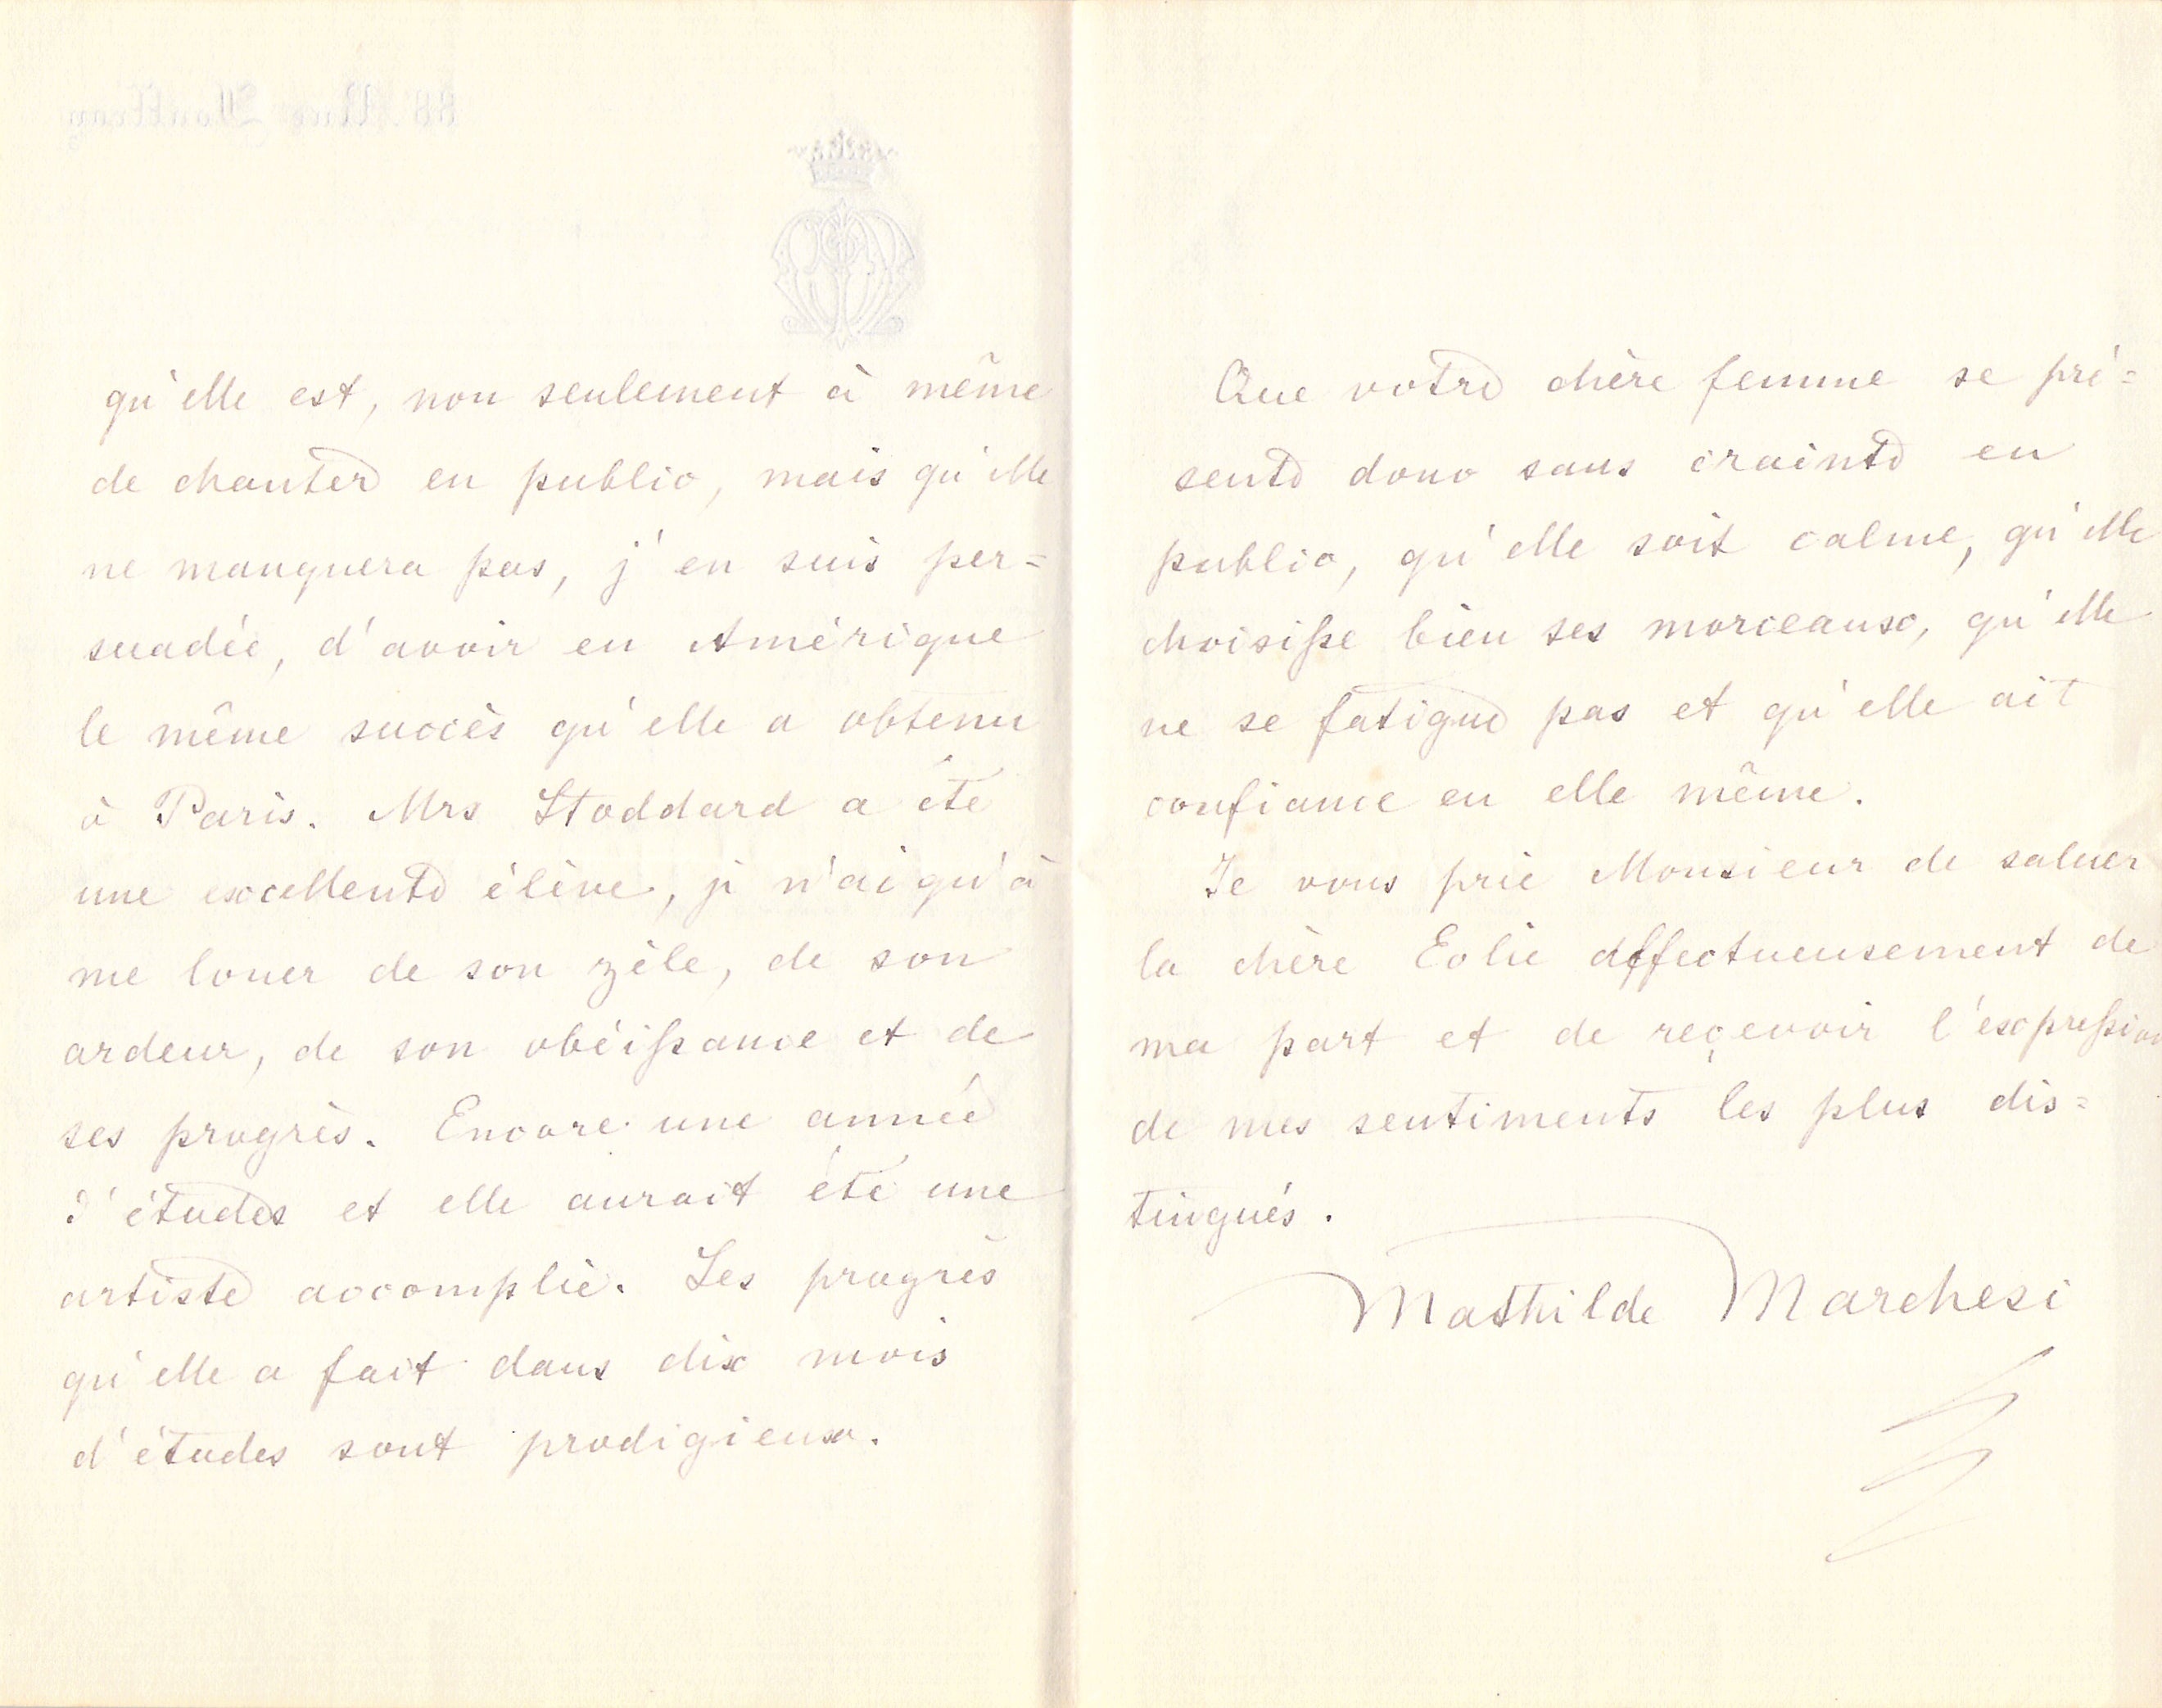 88 Rue Jouffroy
qu'elle est, non seulement à même
de chanter en public, mais qu'elle
ne manquera pas, j'en suis per=
suadée, d'avoir en Amérique
le même succès qu'elle a obtenu
à Paris. Mrs Stoddard a été
une excellente élève, je n'ai qu'à
me louer de son zèle, de son
ardeur, de son obéissance et de
ses progrès. Encore une année
d'études et elle aurait été une
artiste accomplie. Les progrès
qu'elle a fait dans dix mois
d'études sont prodigieux.
Que votre chère femme se pré=
sente donc sans crainte en
public, qu'elle soit calme, qu'elle
choisisse bien ses morceaux, qu'elle
ne se fatigue pas et qu'elle ait
confiance en elle même.
Je vous prie Monsieur de saluer
la chère Eolie affectueusement de
ma part et de reçevoir l'expression
de mes sentiments les plus dis=
tingués.
Mathilde Marchesi